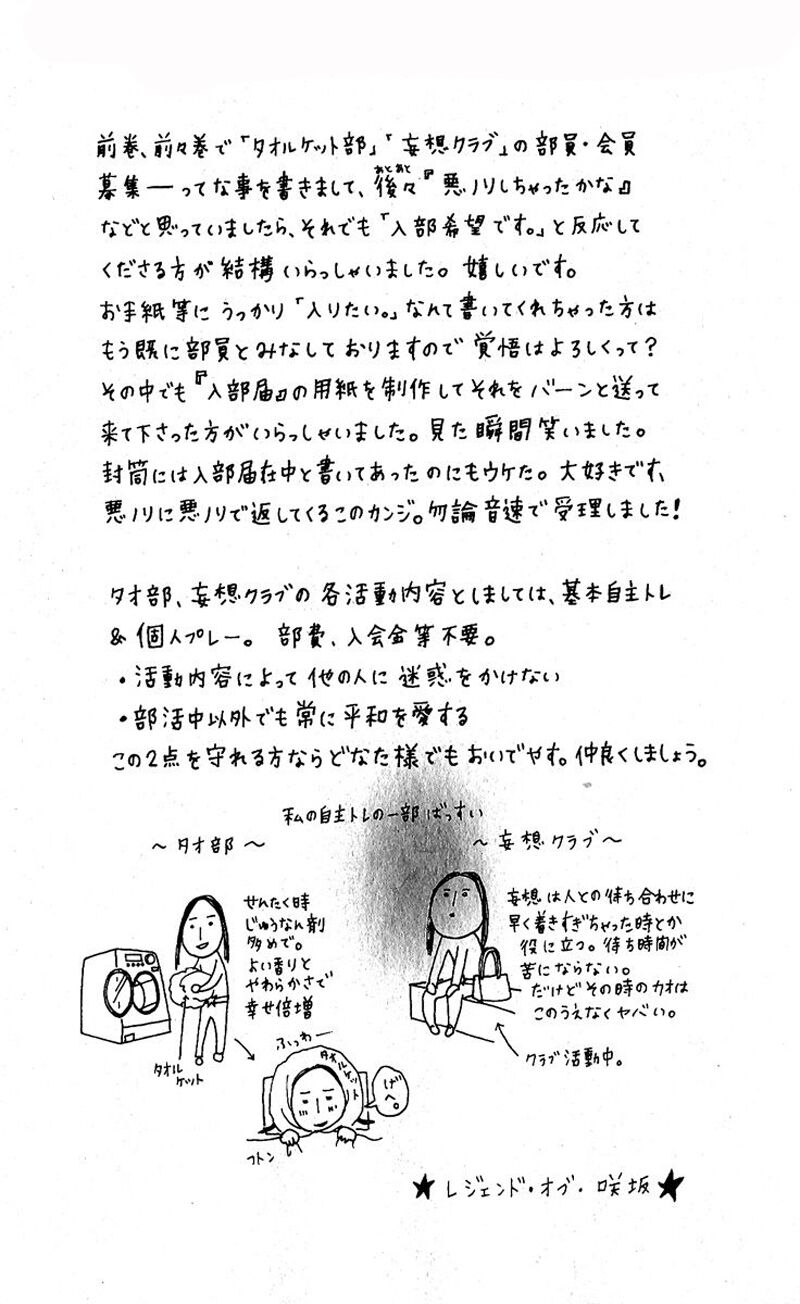 前巻、前々巻で「タオルケット部」「妄想クラブ」の部員・会員
募集―ってな事を書きまして、後々『悪ノリしちゃったかな』
あとあと
などと思っていましたら、それでも「入部希望です。」と反応して
くださる方が結構いらっしゃいました。嬉しいです。
お手紙等にうっかり「入りたい。」なんて書いてくれちゃった方は
もう既に部員とみなしておりますので覚悟はよろしくって?
その中でも『入部届』の用紙を制作してそれをバーンと送って
来て下さった方がいらっしゃいました。見た瞬間笑いました。
封筒には入部届在中と書いてあったのにもウケた。大好きです、
悪ノリに悪ノリで返してくるこのカンジ。勿論音速で受理しました!
タオ部、妄想クラブの各活動内容としましては、基本自主トレ
& 個人プレー。部費、入会金等不要。
・活動内容によって他の人に迷惑をかけない
・部活中以外でも常に平和を愛する
この2点を守れる方ならどなた様でもおいでやす。仲良くしましょう。
私の自主トレの一部ばっすい
〜タオ部〜
せんたく時
じゅうなん剤
多めで。
よい香りと
やわらかさで
幸せ倍増
タオル
ケット
ふっわー
タオルケット
げへ。
フトン
〜妄想クラブ〜
妄想は人との待ち合わせに
早く着きすぎちゃった時とか
役に立つ。待ち時間が
苦にならない。
だけどその時のカオは
このうえなくヤバい。
クラブ活動中。
★レジェンド・オブ・咲坂★